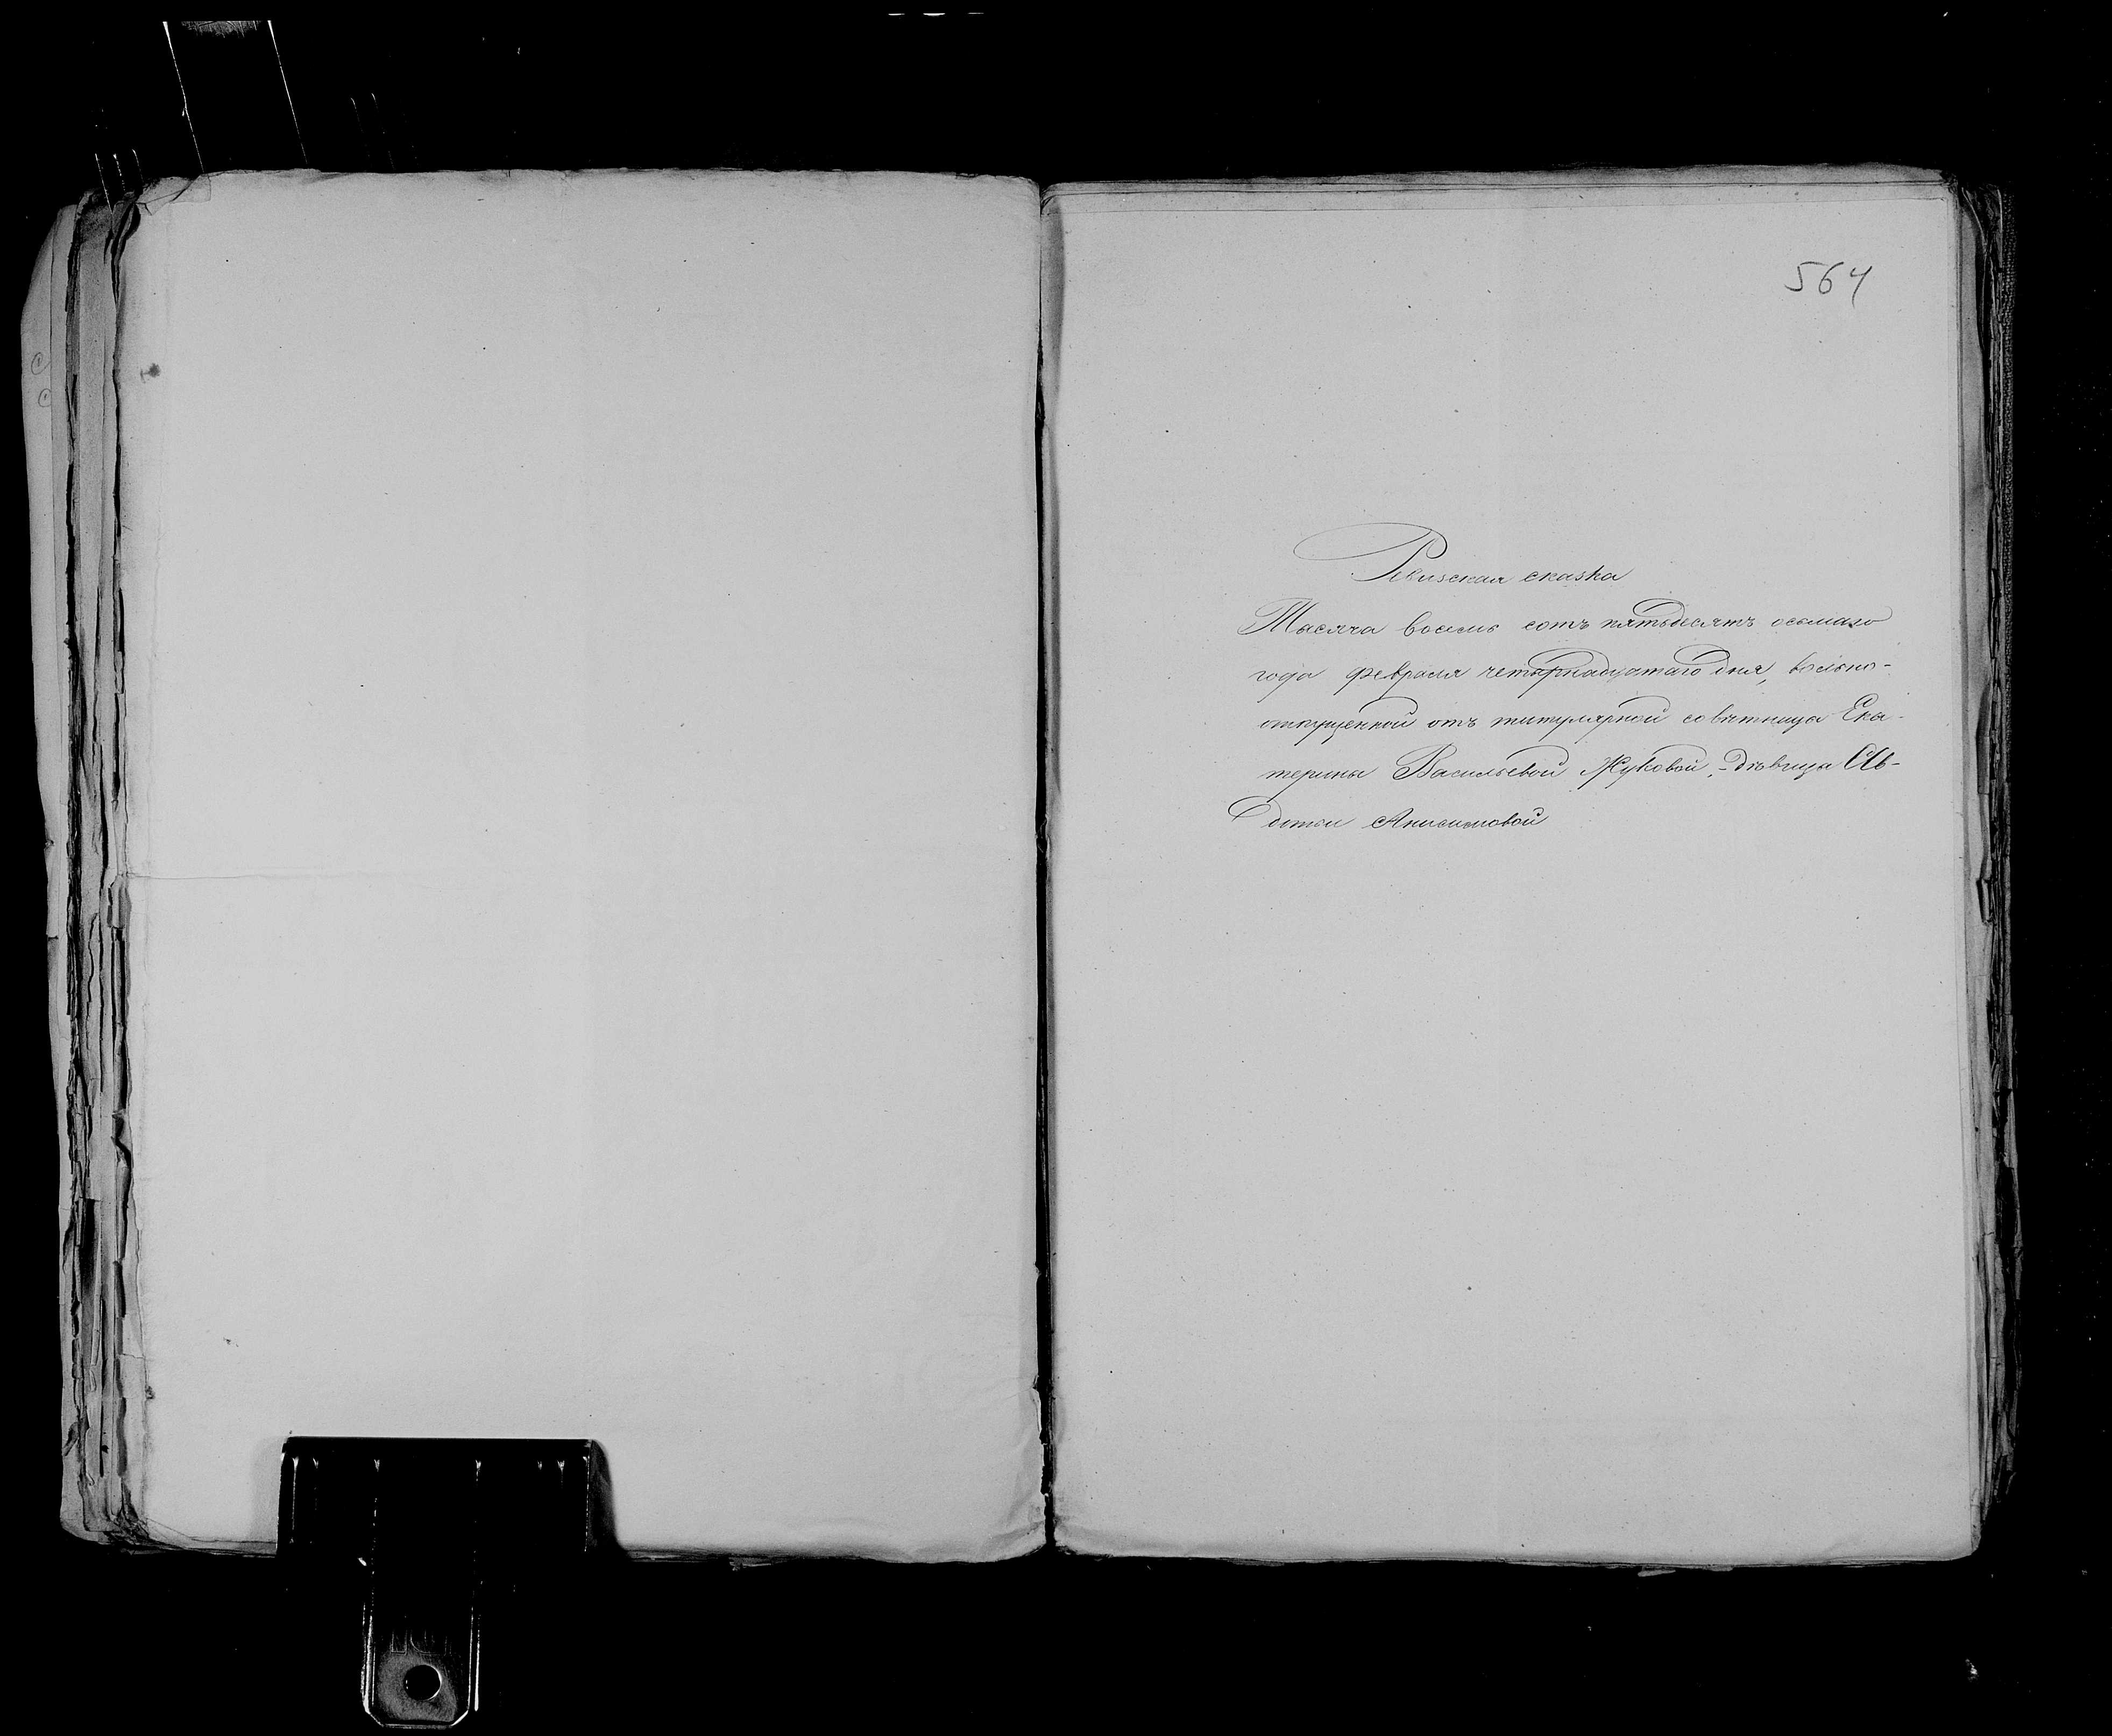 564
Ревизская сказка
Тысяча восемь сотъ пятьдесятъ осьмаго
года февраля четырнадцатаго дня, вольно-
отпущенной отъ титулярной совѣтницы Ека-
терины Васильевой Жуковой, дѣвицы Ав-
дотьи Анисимовой